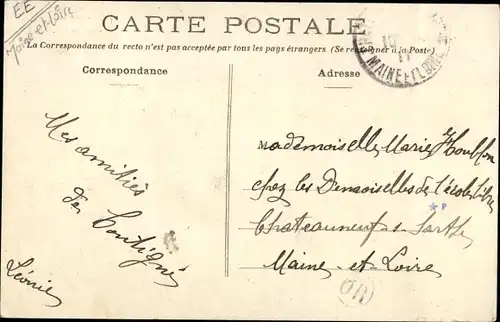 EE
Maine-et-Loire
CARTE POSTALE
La Correspondance du recto n'est pas acceptée par tous les pays étrangers (Se renseigner à la Poste)
Correspondance
Adresse
MAINE-ET-LOIRE
Mes amitiés
de Contigné
Léonie
Mademoiselle Marie
chez les Demoiselles de l'école libre
Chateauneuf-s-Sarthe
Maine-et-Loire